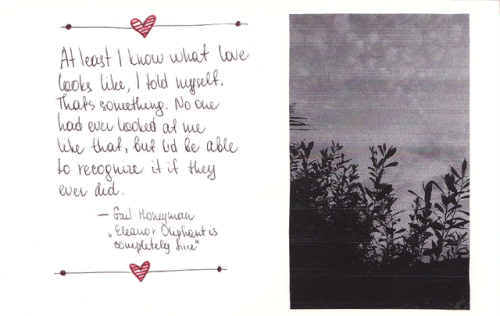 At least I know what love
looks like, I told myself.
Thats something. No one
had ever looked at me
like that, but I'd be able
to recognize it if they
ever did.
— Gail Honeyman
„Eleanor Oliphant is
completely fine"